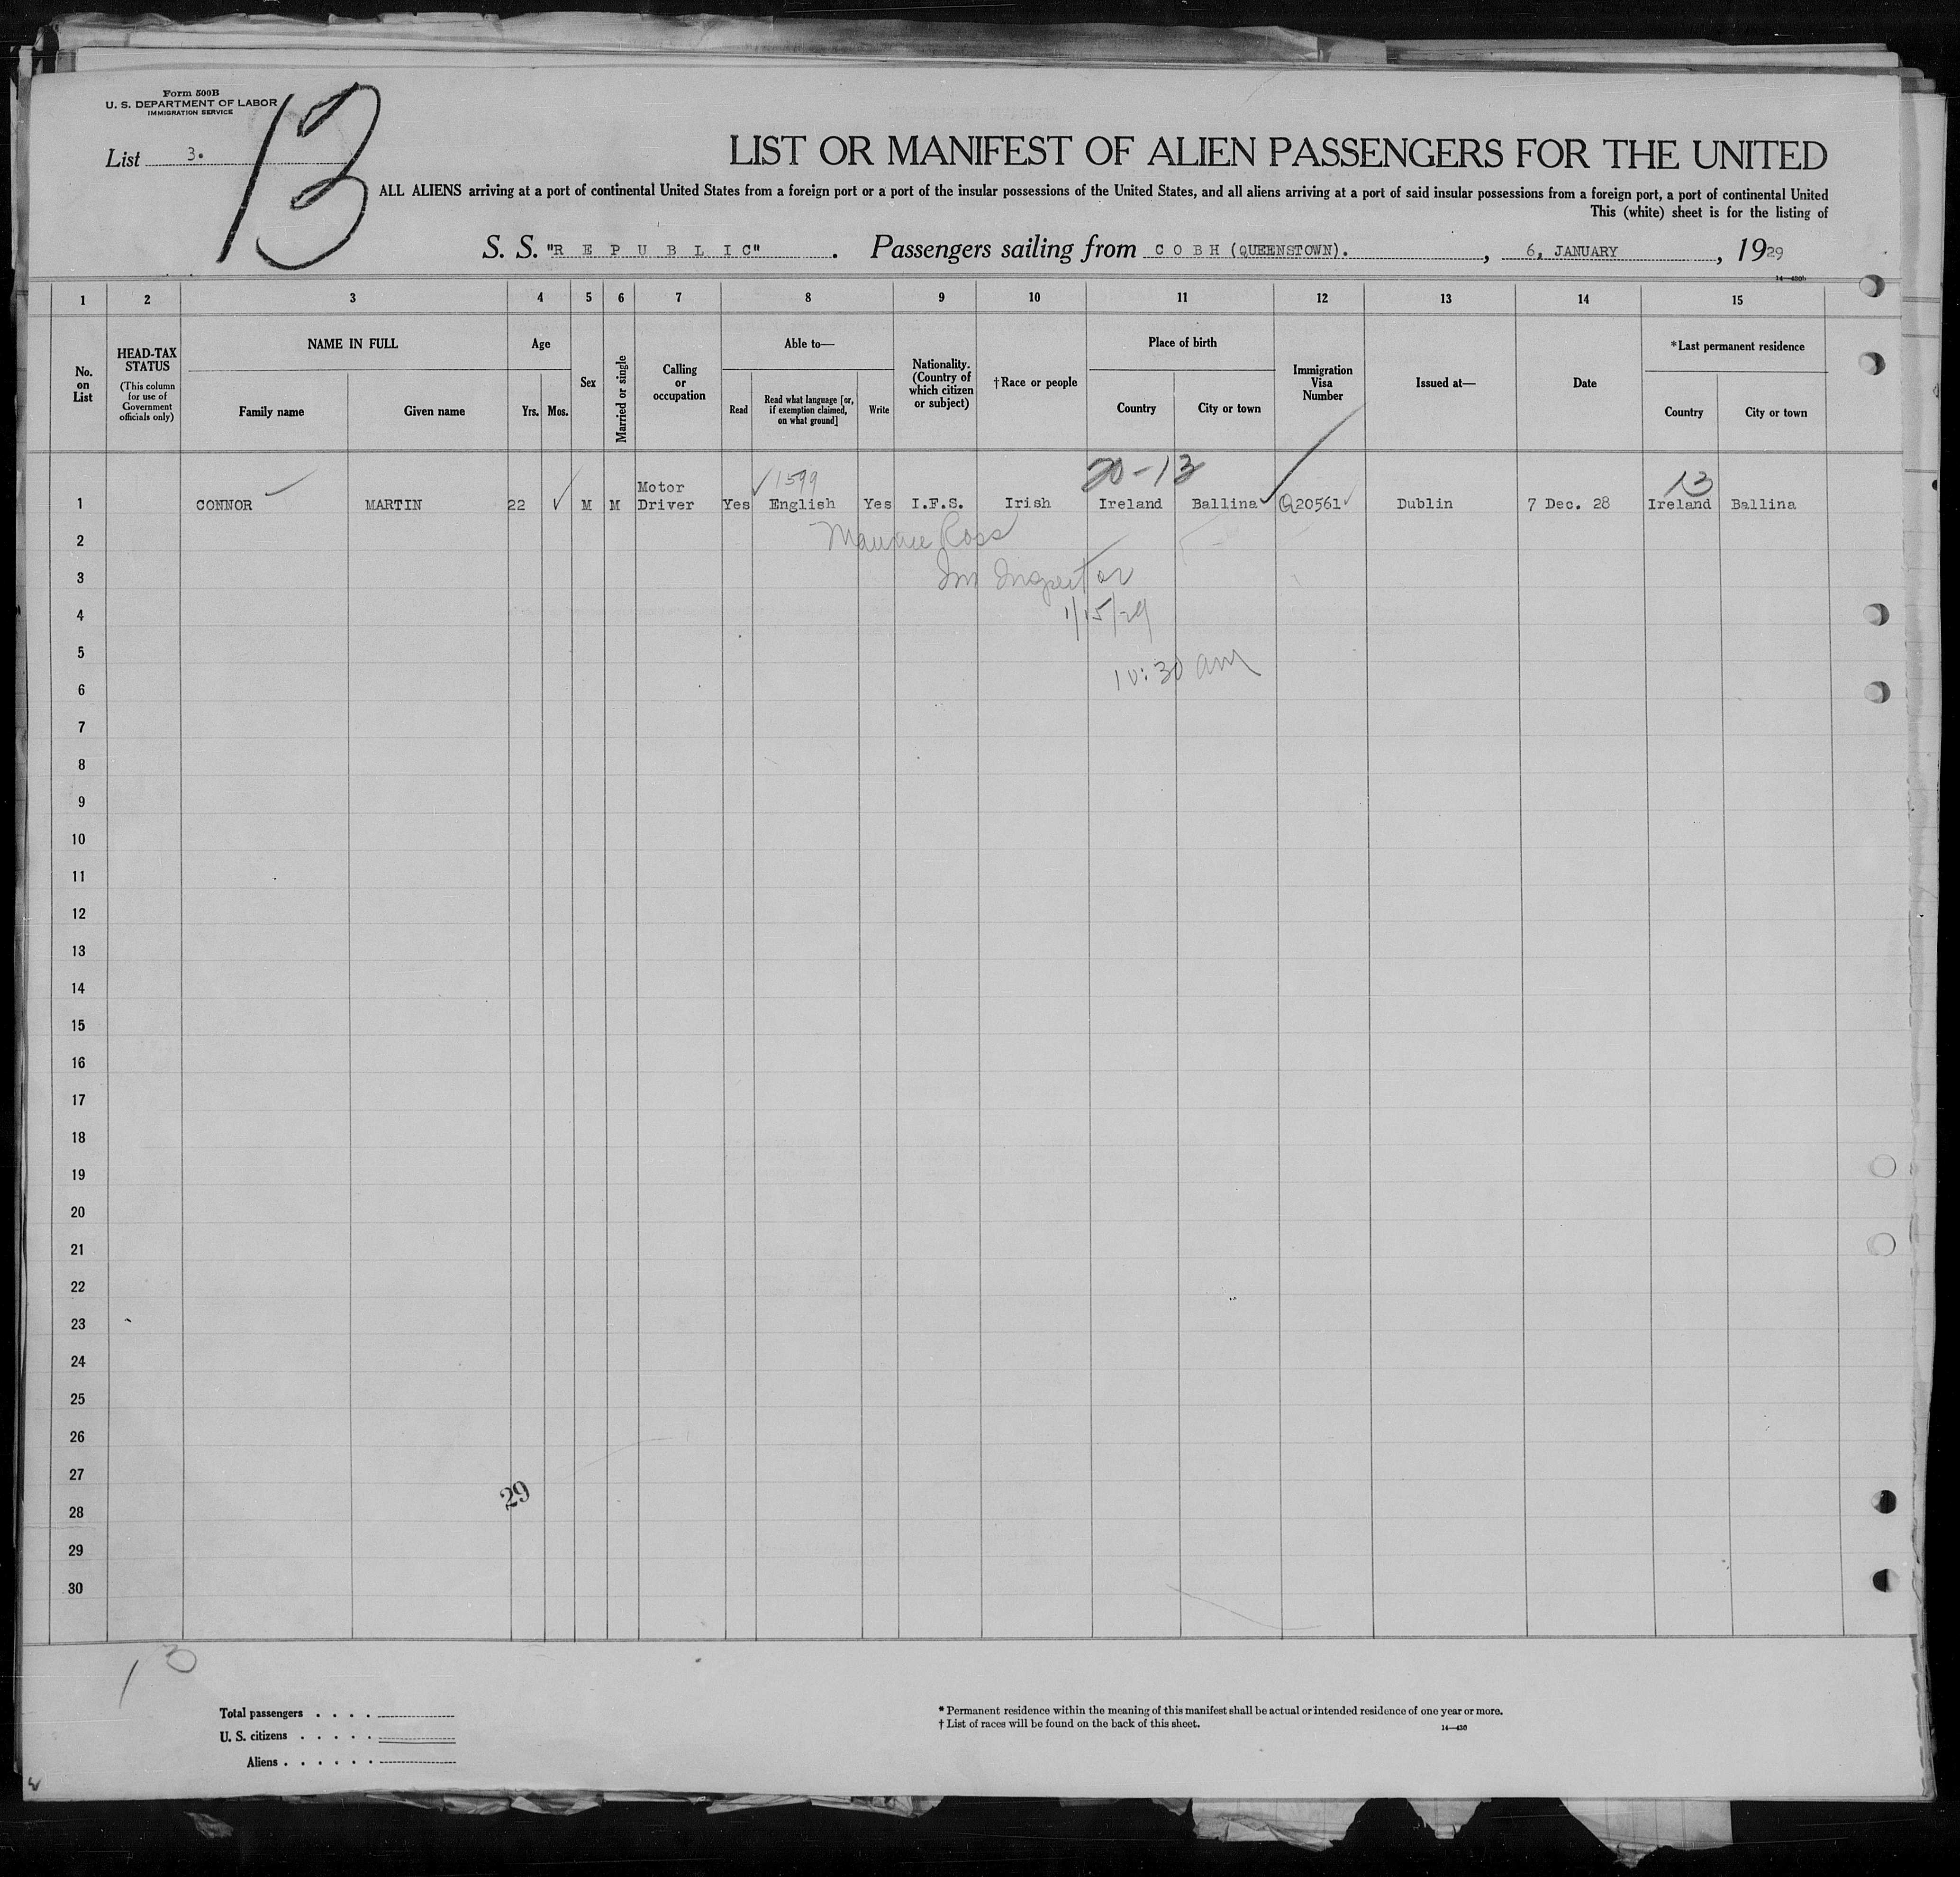 Form 500B
U. S. DEPARTMENT OF LABOR
IMMIGRATION SERVICE
13
List 3.
LIST OR MANIFEST OF ALIEN PASSENGERS FOR THE UNITED
ALL ALIENS arriving at a port of continental United States from a foreign port or a port of the insular possessions of the United States, and all aliens arriving at a port of said insular possessions from a foreign port, a port of continental United
This (white) sheet is for the listing of
S. S. "R E P U B L I C" . Passengers sailing from C O B H (QUEENSTOWN). , 6, JANUARY , 1929
1 2 3 4 5 6 7 8 9 10 11 12 13 14 15
No. on List
HEAD-TAX STATUS
(This column for use of Government officials only)
NAME IN FULL
Family name Given name
Age
Yrs. Mos.
Sex
Married or single
Calling or occupation
Able to—
Read
Read what language [or, if exemption claimed, on what ground]
Write
Nationality. (Country of which citizen or subject)
†Race or people
Place of birth
Country City or town
Immigration Visa Number
Issued at—
Date
*Last permanent residence
Country City or town
1599 20-13 13
1 CONNOR MARTIN 22 ✓ M M Motor Driver Yes English Yes I.F.S. Irish Ireland Ballina Q20561 Dublin 7 Dec. 28 Ireland Ballina
2 Maurice Ross
3 Im Inspector
4 1/15/29
5
10:30 am
6
7
8
9
10
11
12
13
14
15
16
17
18
19
20
21
22
23
24
25
26
27
29
28
29
30
13
Total passengers . . . .
U. S. citizens . . . . .
Aliens . . . . . .
* Permanent residence within the meaning of this manifest shall be actual or intended residence of one year or more.
† List of races will be found on the back of this sheet.
14—430